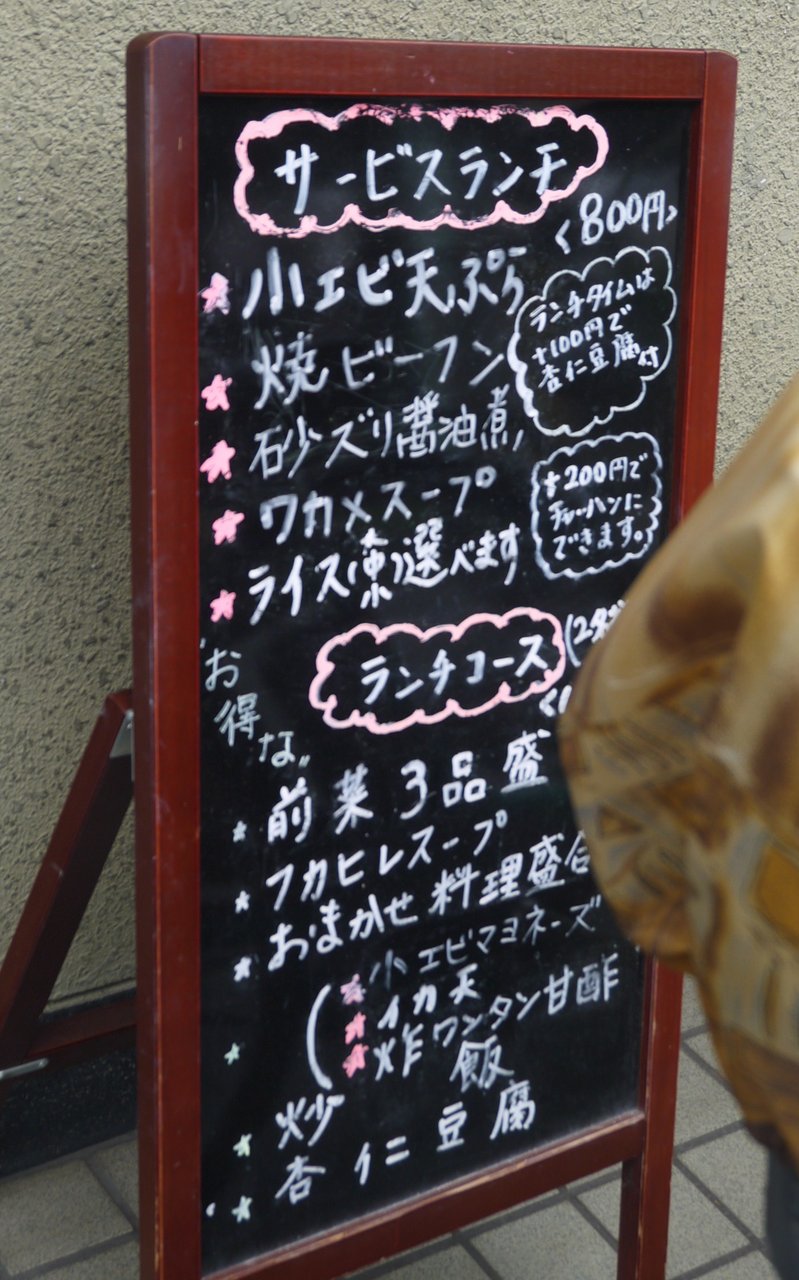 サービスランチ
<800円>
小エビ天ぷら
焼ビーフン
砂ズリ醤油煮
ワカメスープ
ライス(大中小)選べます
ランチタイムは
+100円で
杏仁豆腐付
+200円で
チャーハンに
できます。
ランチコース
"お得な"
前菜3品盛
フカヒレスープ
おまかせ料理盛合
小エビマヨネーズ
イカ天
炸ワンタン甘酢
炒飯
杏仁豆腐